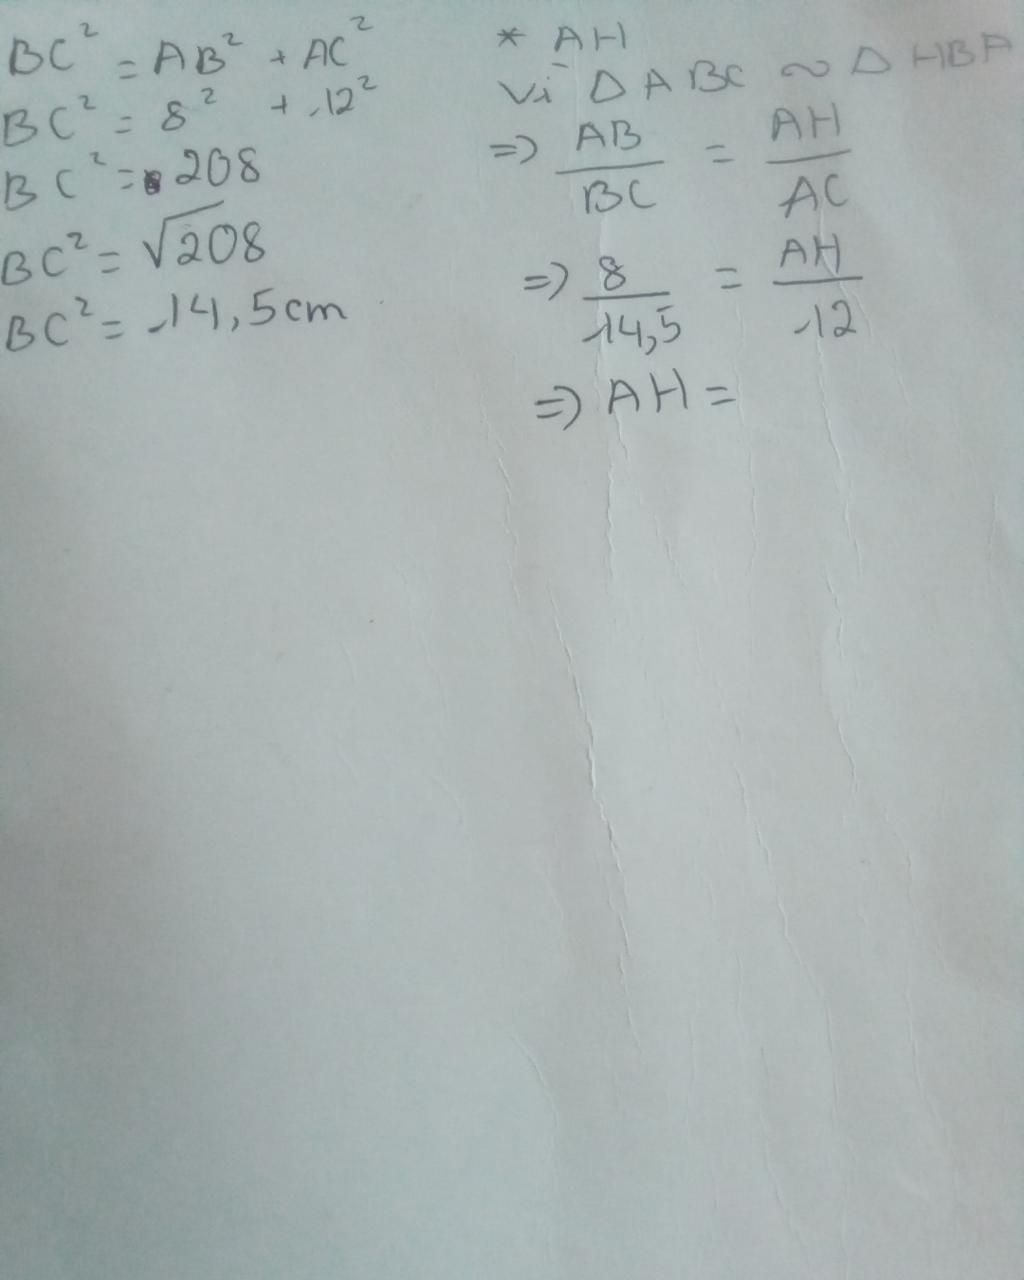 BC² = AB² + AC²
BC² = 8² + 12²
BC² = 208
BC² = √208
BC² = 14,5cm
* AH
Vì Δ ABC ∽ Δ HBA
=> AB/BC = AH/AC
=> 8/14,5 = AH/12
=> AH =